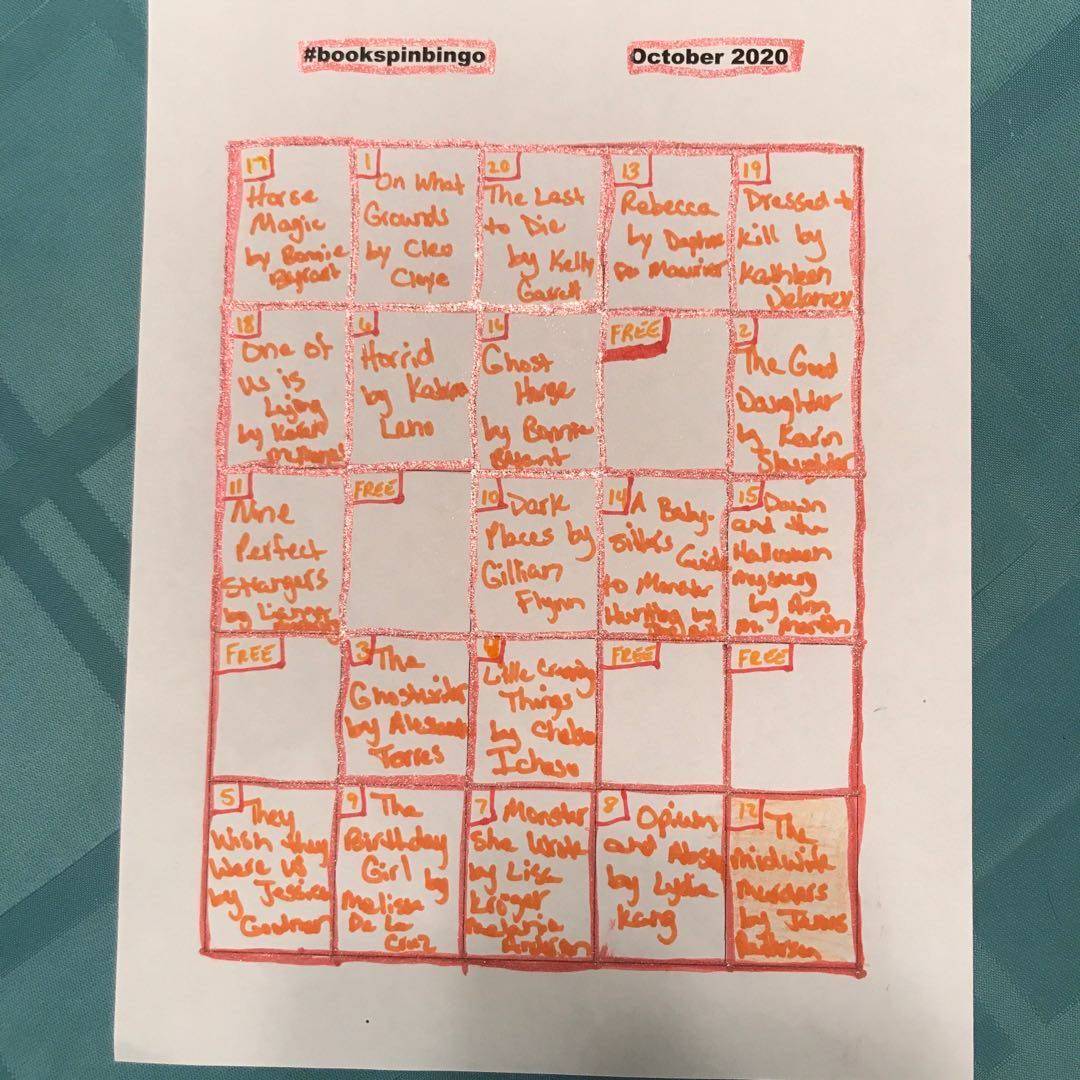 #bookspinbingo
October 2020
17
Horse
Magic
by Bonnie
1
On What
Grounds
by Cleo
Coyle
20
The Last
to Die
by Kelly
Garrett
13
Rebecca
by Daphne
Du Maurier
19
Dressed to
kill by
Kathleen
Delaney
18
One of
us is
Lying
by Karen
McManus
6
Horrid
by Katrina
Leno
16
Ghost
Horse
by Bonnie
Bryant
FREE
2
The Good
Daughter
by Karin
Slaughter
11
Nine
Perfect
Strangers
by Liane
FREE
10
Dark
Places by
Gillian
Flynn
14
A Baby-
sitter's
Guide
to Monster
Hunting by
15
Dawn
and the
Halloween
mystery
by Ann
M. Martin
FREE
3
The
Ghostwriter
by Alessandra
Torres
4
Little Creeping
Things
by Chelsea
Ichaso
FREE
FREE
5
They
Wish they
were us
by Jessica
Goodman
9
The
Birthday
Girl by
Melissa
De La
Cruz
7
Monster
she Wrote
by Lisa
Kröger
Melanie
Anderson
8
Opium
and Absinthe
by Lydia
Kang
12
The
midwife
murders
by James
Patterson